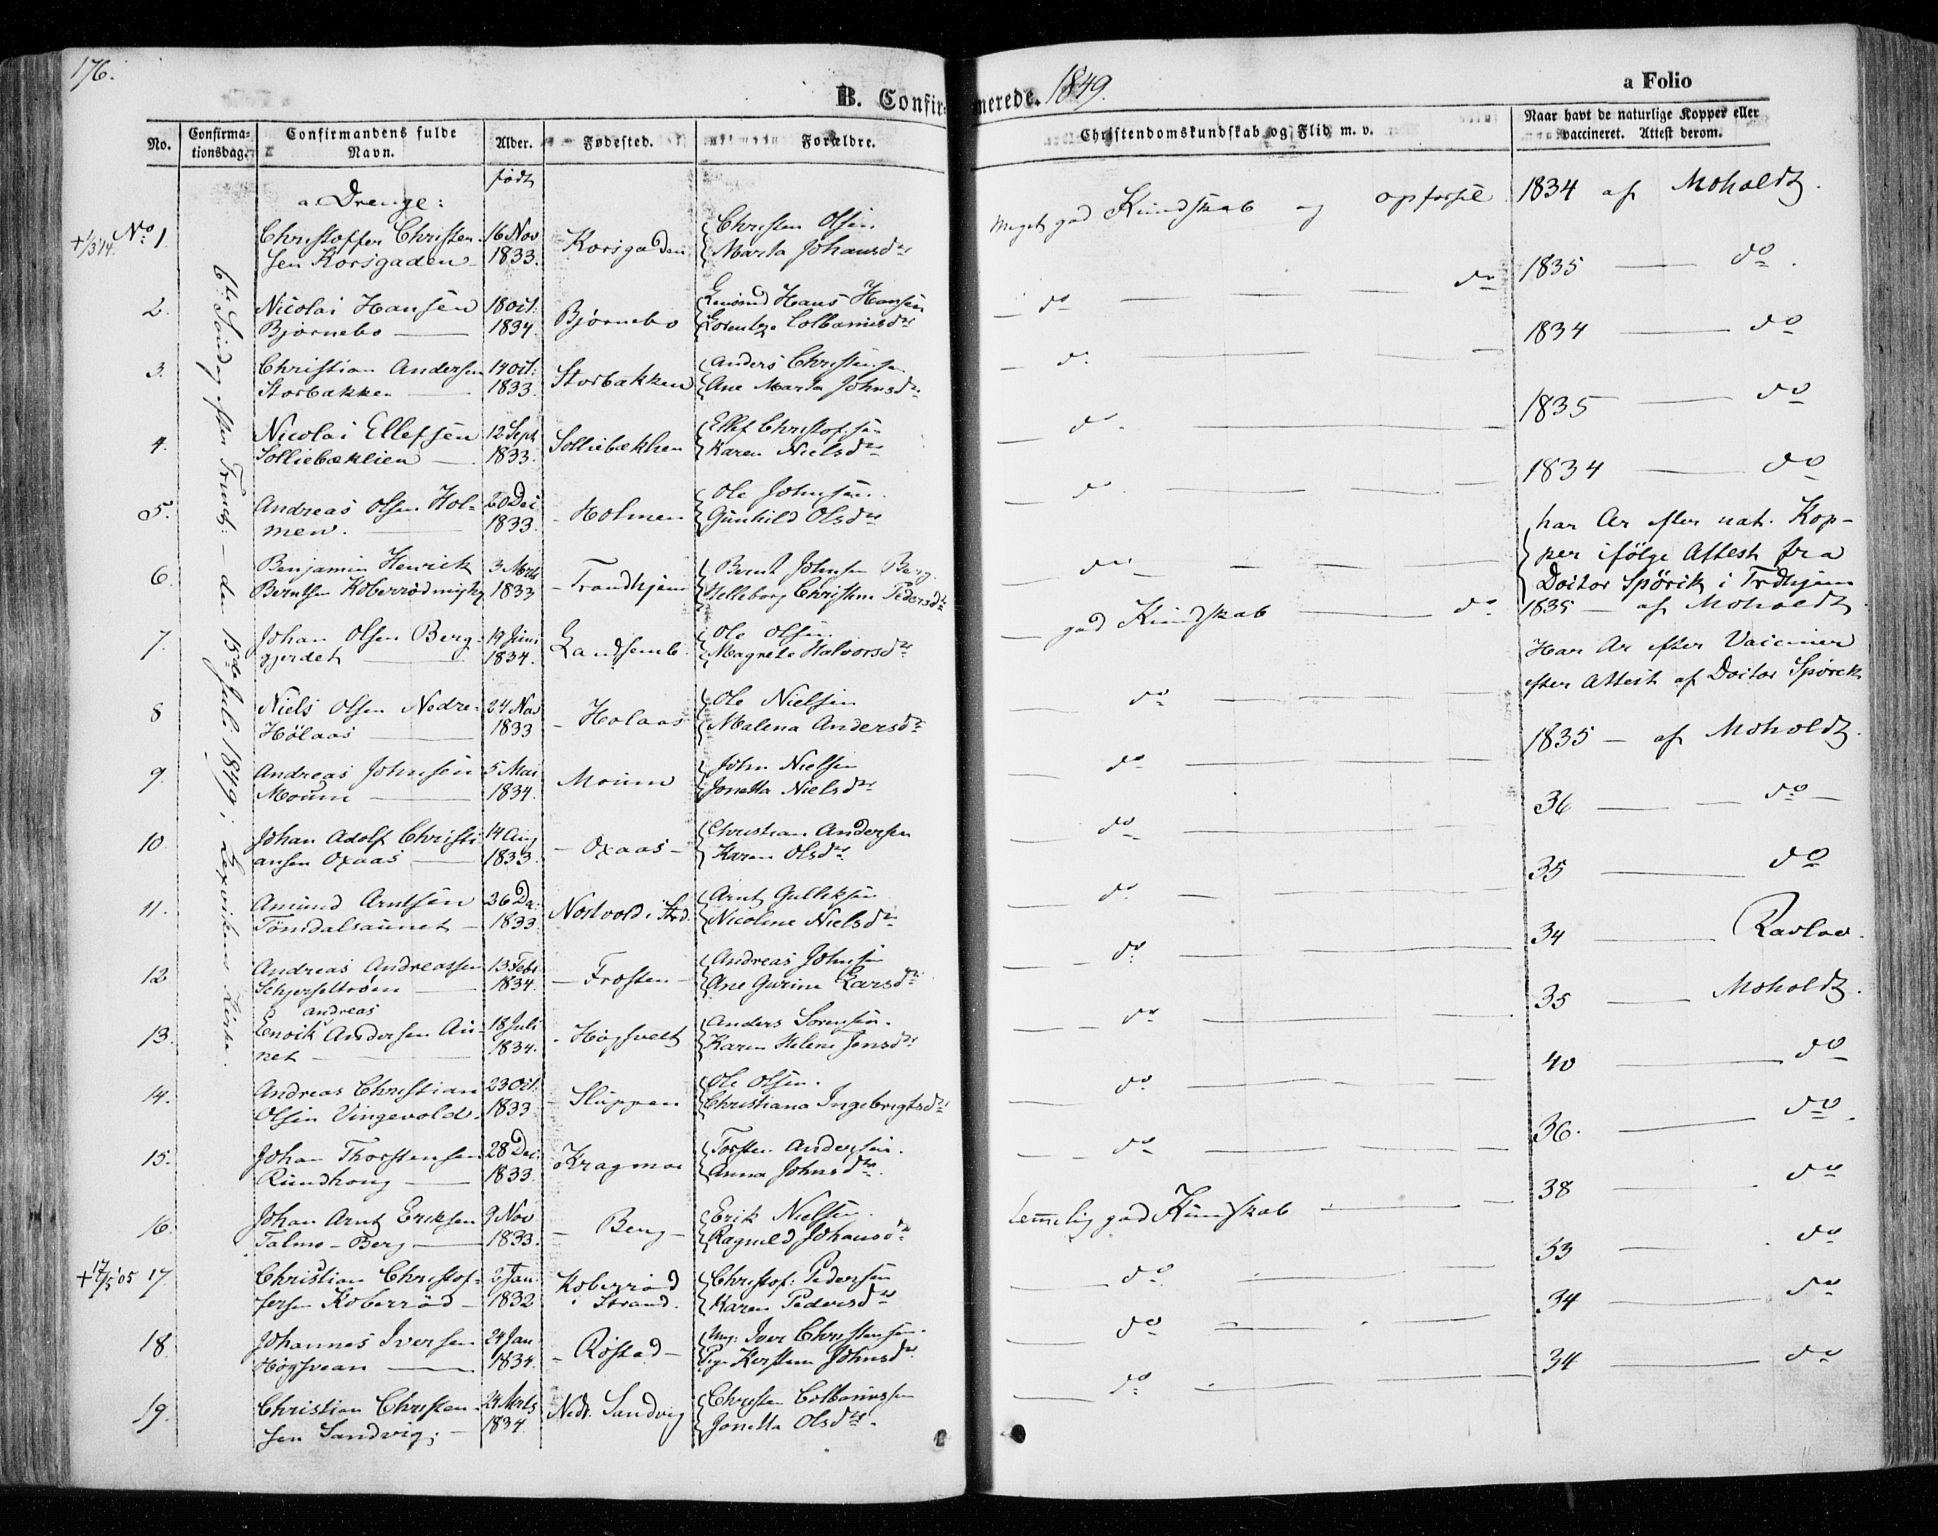 176.
B. Confirmerede. 1849.
a Folio
No.
Confirmationsdag.
Confirmandens fulde Navn.
Alder.
Fødested.
Forældre.
Christendomskundskab og Flid m. v.
Naar havt de naturlige Kopper eller vaccineret. Attest derom.
født
a. Drenge:
6te Søndag efter Trinit: – den 15de Juli 1849, i Lexvikens Kirke.
No 1. Christoffer Christen- 16 Nov Korsgaden Christen Olsen Meget god Kundskab og opførsel 1834 af Moholdt.
sen Korsgaden 1833. Marta Johansdr
2. Nicolai Hansen 18 Oct: Bjørnebo Hans Hansen do do 1835 — do.
Bjørnebo 1834. Lorentze Colbansdr
3. Christian Andersen 14 Oct: Storbakken Anders Christensen do 1834 — do
Storbakken 1833. Ane Marta Johnsdr
4. Nicolai Ellefsen 12 Sept Solliebækken Ellef Christofsen do 1835 — do
1833. Karen Nielsdr
5. Andreas Olsen Hol- 20 Dec Holmen Ole Johnsen do 1834 — do
men. 1833. Gunhild Olsdr
6. Benjamin Henrick 3 Marts Trondhjem Bernt Johnsen Berg do har Ar efter nat. Kop-
Berntsen 1833 Christine Pedersdr per ifölge Attest fra
Doctor Spörik i Trdhjem
7. Johan Olsen Berg- 19 Juni Landsemb. Ole Olsen god Kundskab — do 1835 — af Moholdt
gjerdet 1834. Magrete Halvorsdr
8 Niels Olsen Nedre- 24 Nov Holaas Ole Nielsen do Har Ar efter Vacciner
Hölaas 1833 Malena Andersdr efter Attest af Doctor Spörck
9. Andreas Johnsen 5 Mai Moum John Nielsen do 1835 — af Moholdt.
Moum 1834. Jonetta Nielsdr
10 Johan Adolf Christi- 14 Aug Oxaas Christian Andersen do 36 — do
ansen Oxaas 1833. Karen Olsdr
11. Amund Arntsen 26 De: Nostvold i Strd. Arnt Gulleksen do 35 — do
Tömdalsaunet 1833 Nicoline Nielsdr
12 Andreas Andreassen 13 Febr Frosten Andreas Johnsen do 34 — Ravlao.
1834. Ane Gurine Larsdr
andreas
13. Enoik Andersen Au- 18 Juli Högsvelt Anders Sorensen. do 35 — Moholdt.
net 1834. Karen Helene Jensdr
14. Andreas Christian 23 Oct. Sluppen Ole Olsen. do 40 — do
Olsen Vingevold. 1833 Christiana Ingebrigtsdr
15. Johan Thorstensen 28 Dec. Kragmoe Torsten Andersen. do 36. — do
Rundhoug 1833. Anna Johnsdr
16. Johan Arnt Eriksen 9 Nov Berg Erik Nielsen. temelig god Kundskab 38 — do
Talmo – Berg 1833. Ragnild Johansdr
+ 17/5 05 17. Christian Christof- 2 Jan. Koberröd Christof: Pedersen do 33 — do
fersen Koberröd 1832 i Strand. Karen Pedersdr
18. Johannes Iversen 24 Jan. Röstad Ung: Iver Christensen. do 34 — do
1834. Pige Kerstine Johnsdr
19. Christian Christen- 24 Mrts Nedr. Sandvig Christen Colbanussen do 34 — do
sen Sandvig; 1834. Jonetta Olsdr